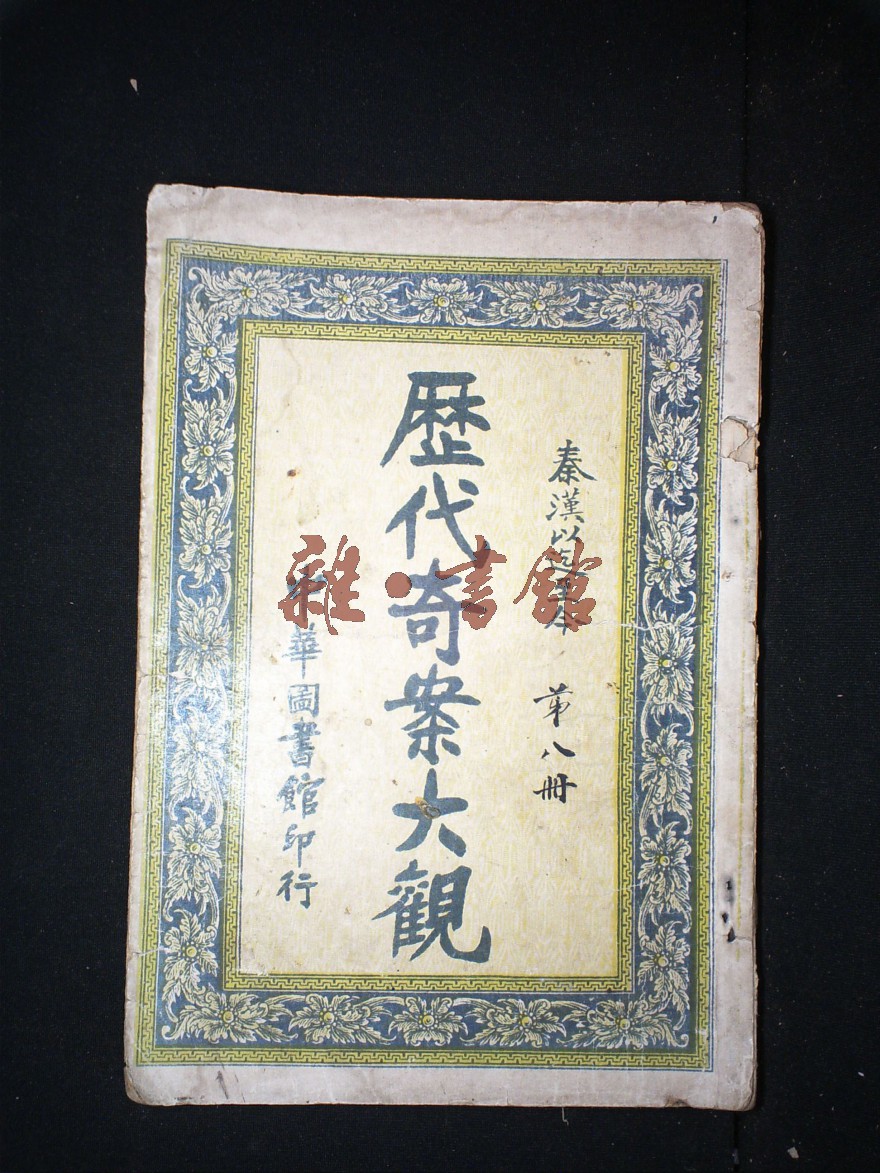 秦漢以迄至今 第八冊
歷代奇案大觀
華圖書館印行
雜·書館